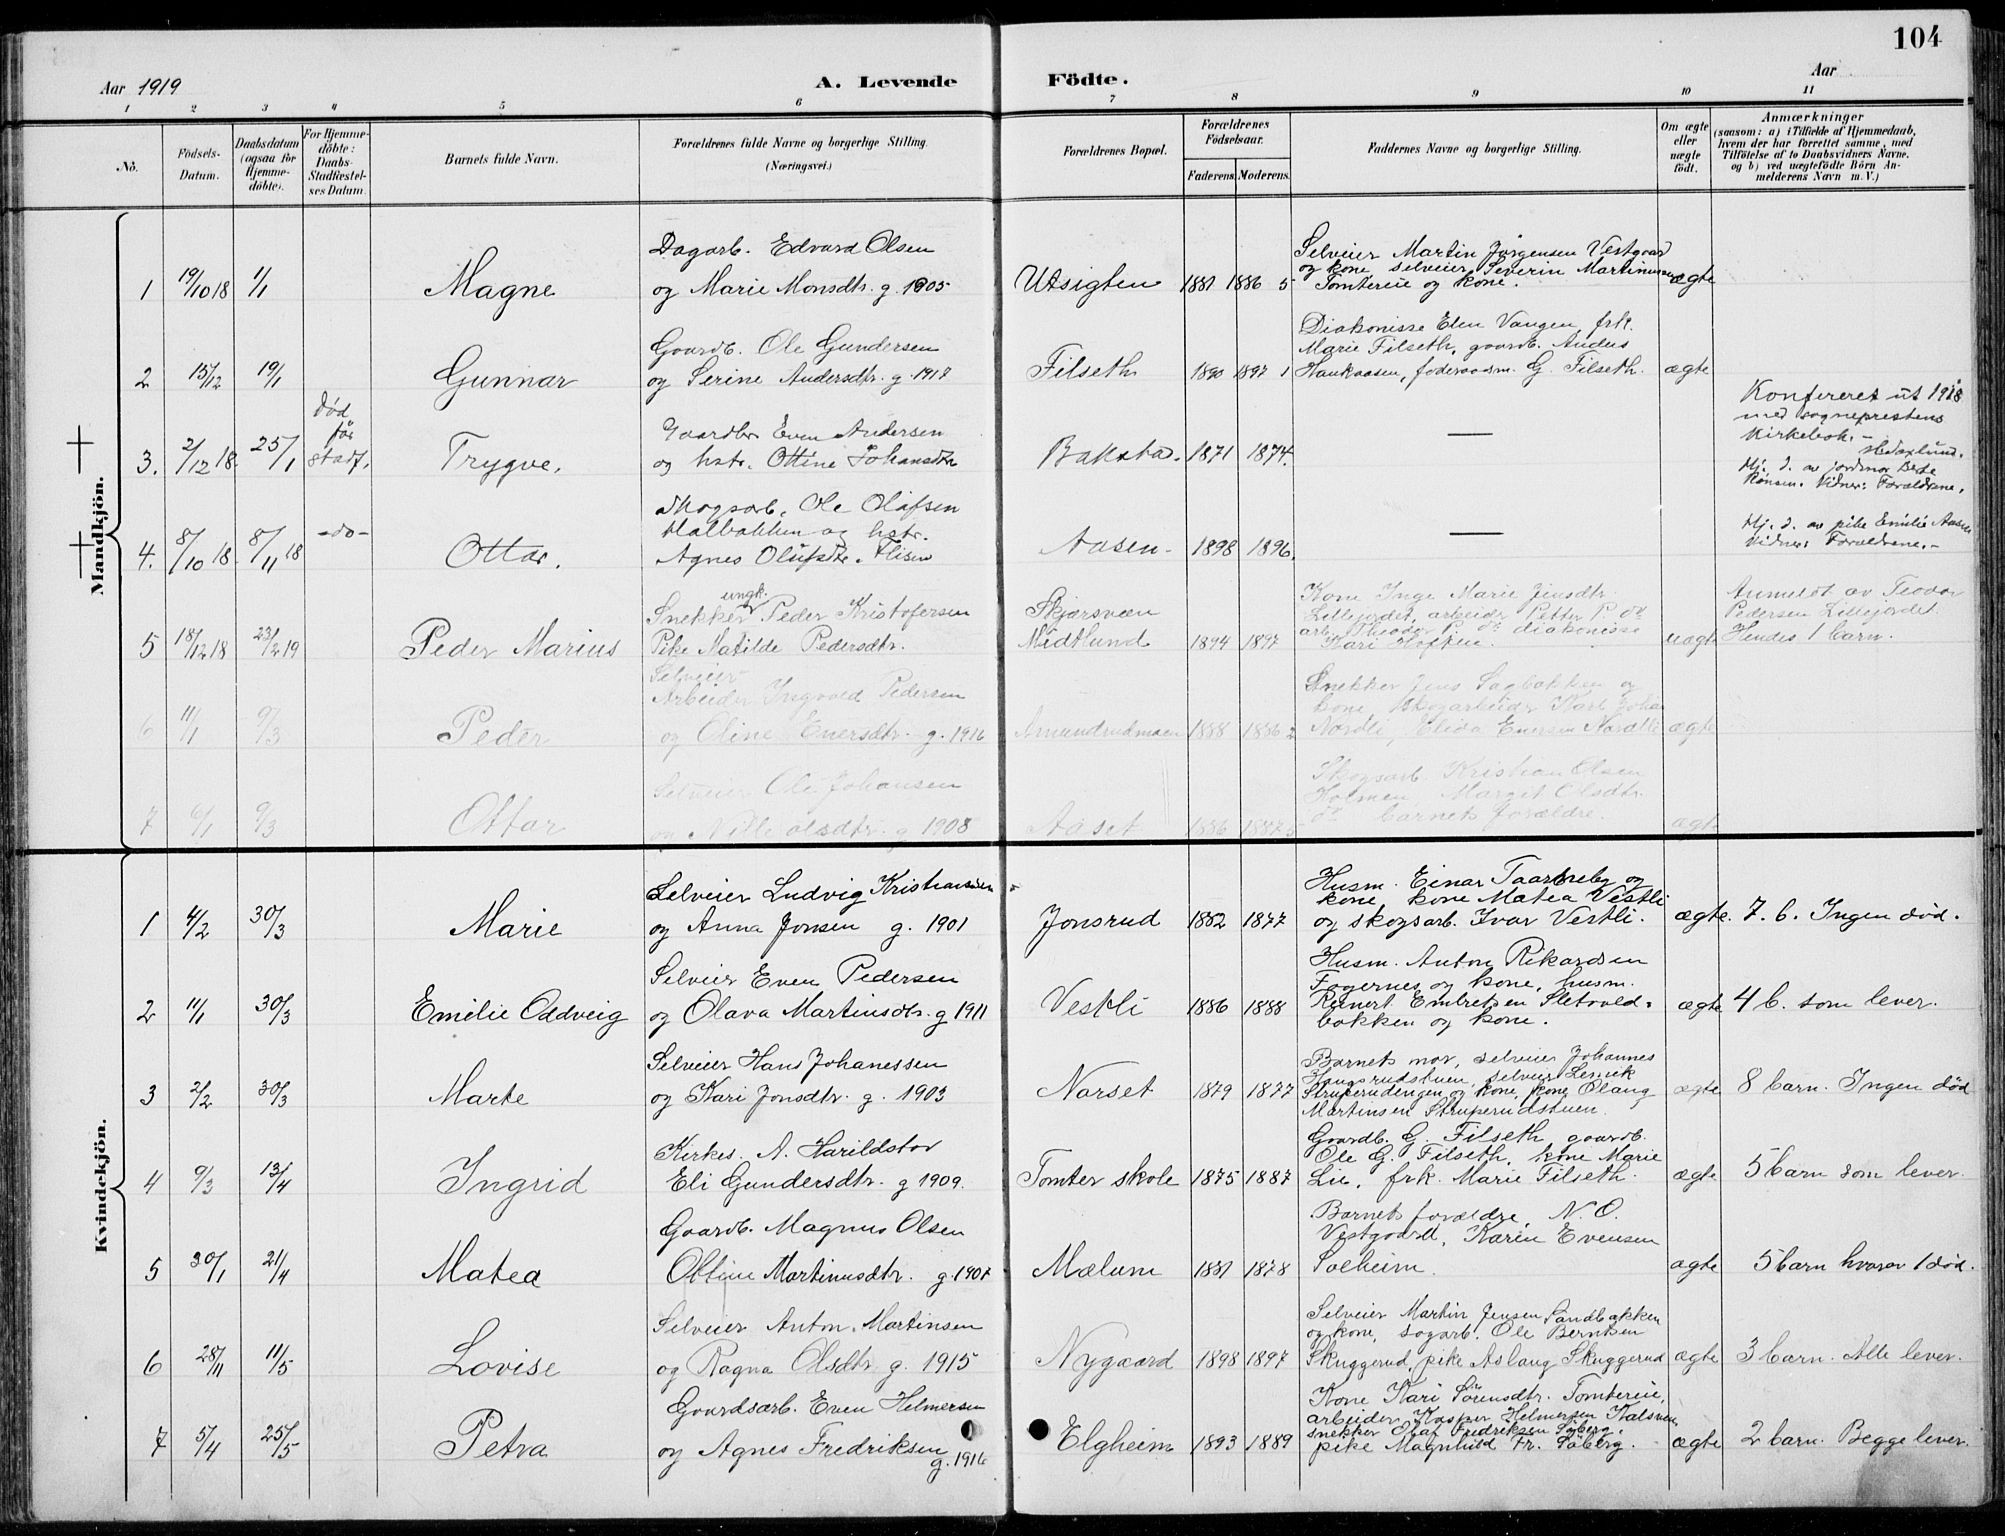 104
Aar 1919
A. Levende Födte.
Aar
1 2 3 4 5 6 7 8 9 10 11
No.
Födsels-Datum.
Daabsdatum (ogsaa for Hjemmedöbte).
For Hjemmedöbte: Daabs-Stadfæstelses Datum.
Barnets fulde Navn.
Forældrenes fulde Navne og borgerlige Stilling
(Næringsvei.)
Forældrenes Bopæl.
Forældrenes Födselsaar.
Faderens. Moderens.
Faddernes Navne og borgerlige Stilling.
Om ægte eller uægte födt.
Anmærkninger
(saasom: a) i Tilfælde af Hjemmedaab,
hvem der har forrettet samme, med
Tilföielse af to Daabsvidners Navne,
og b) ved uægtefödte Börn Anmelderens Navn m. V.)
Mandkjön.
1 19/10 18 1/1
Magne
Dagarb. Edvard Olsen
og Marie Monsdtr. g. 1905
Utsigten 1881 1886 5
Selveier Martin Jørgensen Vestgaard
og kone, selveier Severin Martinusen
Tomtereie og kone.
ægte
2 15/12 19/1
Gunnar
Gaardb. Ole Gundersen
og Serine Andersdtr. g. 1917
Filseth 1890 1897 1
Diakonisse Elen Vangen, frk.
Marie Filseth, gaardb. Andus
Haukaasen, føderaadsm. G. Filseth.
ægte
3. 2/12 18. 25/1
Død før stadf.
Trygve.
Gaardbr Even Andersen
og hstr. Ottine Johansdtr
Bakstad. 1871 1874.
—
Konfereret ut 1918
med sogneprestens
kirkebok. –
Hj. d. av jordmor Berte
Rønsen. Vidner: Forældrene.
4. 8/10 18 8/11 18
-do-
Ottar.
Skogsarb. Ole Olafsen
Halbakken og hstr.
Agnes Olufsdtr. Flisen
Aasen - 1898 1896.
—
Hj. d. av pike Emilie Aasen
Vidner: Forældrene. -
5 18/12 18 23/2 19
Peder Marius
ungk.
Snekker Peder Kristofersen
Pike Matilde Pedersdtr.
Skjærsvæen
Midtlund 1894 1897
Kone Inge Marie Jensdtr.
Lillejordet, arbeider Petter P. do
arb. Theodor P. do diakonisse
Kari Koften.
uægte
Anmeldt av Teodor
Pedersen Lillejordet.
Hendes 1 barn.
6 11/1 9/3
Peder
Selveier
Arbeider Ingvald Pedersen
og Oline Enersdtr. g. 1916
Amundrudmoen 1888 1886 2
Snekker Jens Sagbakken og
kone, skogarbeider Karl Johan
Nordli, Elida Enersen Nordli
ægte
7 6/1 9/3
Ottar
Selveier Ole Johansen
og Nille Olsdtr. g. 1908
Aaset 1886 1887 5
Skogsarb. Kristian Olsen
Holmen, Margit Olsdtr.
do barnets forældre.
ægte
Kvindekjön.
1 4/2 30/3
Marie
Selveier Ludvig Kristiansen
og Anna Jonsen g. 1901
Jonsrud 1852 1877
Husm. Einar Taarneby og
kone, kone Matea Vestli
og skogsarb. Ivar Vestli.
ægte. 7. b. Ingen død.
2 11/1 30/3
Emilie Oddveig
Selveier Even Pedersen
og Olava Martinsdtr. g 1911
Vestli 1886 1888
Husm. Anton Rikardsen
Fagernes og kone, husm.
Reinert Embretsen Sletvold-
bakken og kone.
ægte 4 b. som lever.
3 2/2 30/3
Marte
Selveier Hans Johanessen
og Kari Jonsdtr. g. 1903
Norset 1879 1877
Barnets mor, selveier Johannes
Haugsrudstuen, selveier Lerick
Struperudengen og kone, kone Olaug
Martinsen Struperudstuen.
ægte 8 barn. Ingen død
4 9/3 13/4
Ingrid
Kirkes. A. Harildstad
Eli Gundersdtr. g 1909.
Tomter skole 1875 1887
Gaardb. G. Filseth gaardb.
Ole G. Filseth, kone Marie
Lie, frk. Marie Filseth.
ægte 5 barn som lever.
5 30/1 21/4
Matea
Gaardb. Magnus Olsen
Ottine Martinusdtr. g. 1907
Mælum 1881 1878
Barnets forældre, N. O.
Vestgaard, Karin Evensen
Solheim.
ægte 5 barn hvorav 1 død.
6 28/11 11/5
Lovise
Selveier Anton Martinsen
og Ragna Olsdtr. g. 1915
Nygaard 1898 1897
Selveier Martin Jensen Sandbakken
og kone, sagarb. Ole Berntsen
Skuggerud, pike Aslaug Skuggerud
ægte 3 barn. Alle lever.
7 5/4 25/5
Petra
Gaardsarb. Even Helmersen
og Agnes Fredriksen
g. 1916
Elgheim 1893 1889
Kone Kari Sørensdtr. Tomtereie,
arbeider Kasper Helmersen Kalsveen,
snekker Olaf Fredriksen Søberg,
pike Magnhild Fr. Søberg.
ægte 2 barn. Begge lever.